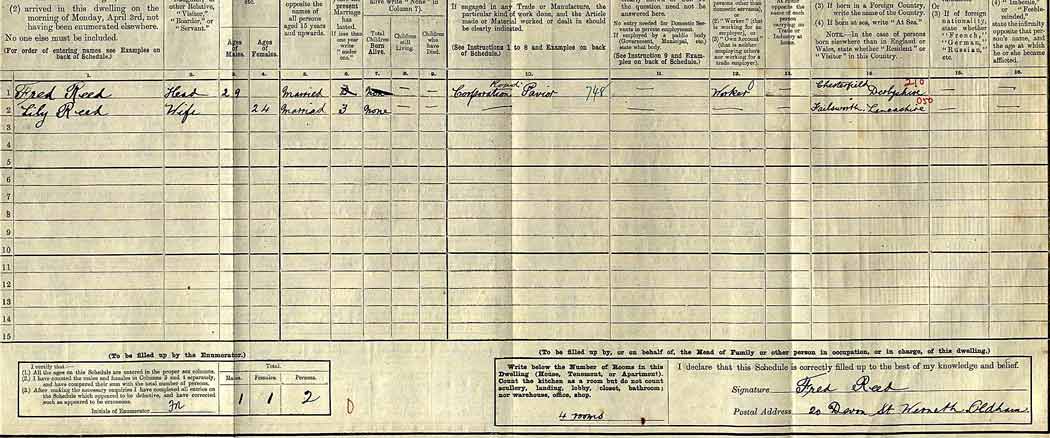 (2) arrived in this dwelling on the morning of Monday, April 3rd, not having been enumerated elsewhere.
No one else must be included.
(For order of entering names see Examples on back of Schedule.)
or other Relative, "Visitor," "Boarder," or "Servant."
Ages of Males.
Ages of Females.
opposite the names of all persons aged 15 years and upwards.
present Marriage has lasted. If less than one year write "under one."
Column 7).
Total Children Born Alive.
Children still Living.
Children who have Died.
If engaged in any Trade or Manufacture, the particular kind of work done, and the Article made or Material worked or dealt in should be clearly indicated.
(See Instructions 1 to 8 and Examples on back of Schedule.)
the question need not be answered here.
No entry needed for Domestic Servants in private employment.
If employed by a public body (Government, Municipal, etc.) state what body.
(See Instruction 9 and Examples on back of Schedule.)
persons other than domestic servants), or
(2) "Worker" (that is working for an employer), or
(3) "Own Account" (that is neither employing others nor working for a trade employer).
opposite the name of each person carrying on Trade or Industry at home.
(3) If born in a Foreign Country, write the name of the Country.
(4) If born at sea, write "At Sea."
NOTE.—In the case of persons born elsewhere than in England or Wales, state whether "Resident" or "Visitor" in this Country.
(3) If of foreign nationality, state whether "French," "German," "Russian," etc.
(4) "Imbecile," or "Feeble-minded," state the infirmity opposite that person's name, and the age at which he or she became afflicted.
1. 2. 3. 4. 5. 6. 7. 8. 9. 10. 11. 12. 13. 14. 15. 16.
1 Fred Reed Head 29 — Married — None — — Corporation Road Pavior 748 — Worker — Chesterfield Derbyshire 210 — —
2 Lily Reed Wife 24 Married 3 None — — — — — — Failsworth Lancashire 050 — —
3
4
5
6
7
8
9
10
11
12
13
14
15
(To be filled up by the Enumerator.)
I certify that:—
(1.) All the ages on this Schedule are entered in the proper sex columns.
(2.) I have counted the males and females in Columns 3 and 4 separately, and have compared their sum with the total number of persons.
(3.) After making the necessary enquiries I have completed all entries on the Schedule which appeared to be defective, and have corrected such as appeared to be erroneous.
Initials of Enumerator
Total.
Males. Females. Persons.
1 1 2
0
(To be filled up by, or on behalf of, the Head of Family or other person in occupation, or in charge, of this dwelling.)
Write below the Number of Rooms in this Dwelling (House, Tenement, or Apartment). Count the kitchen as a room but do not count scullery, landing, lobby, closet, bathroom; nor warehouse, office, shop.
4 rooms
I declare that this Schedule is correctly filled up to the best of my knowledge and belief.
Signature Fred Reed
Postal Address 20 Devon St Werneth Oldham